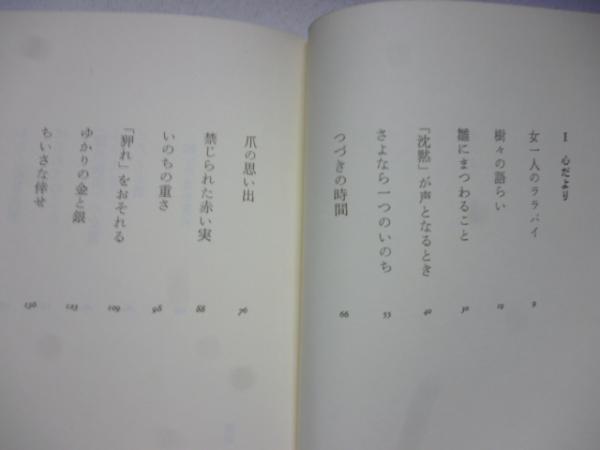 I 心だより
女一人のララバイ 9
樹々の語らい 19
雛にまつわること 30
「沈黙」が声となるとき 40
さよなら一つのいのち 53
つづきの時間 66
爪の思い出 76
禁じられた赤い実 88
いのちの重さ 98
「狎れ」をおそれる 109
ゆかりの金と銀 123
ちいさな倖せ 136